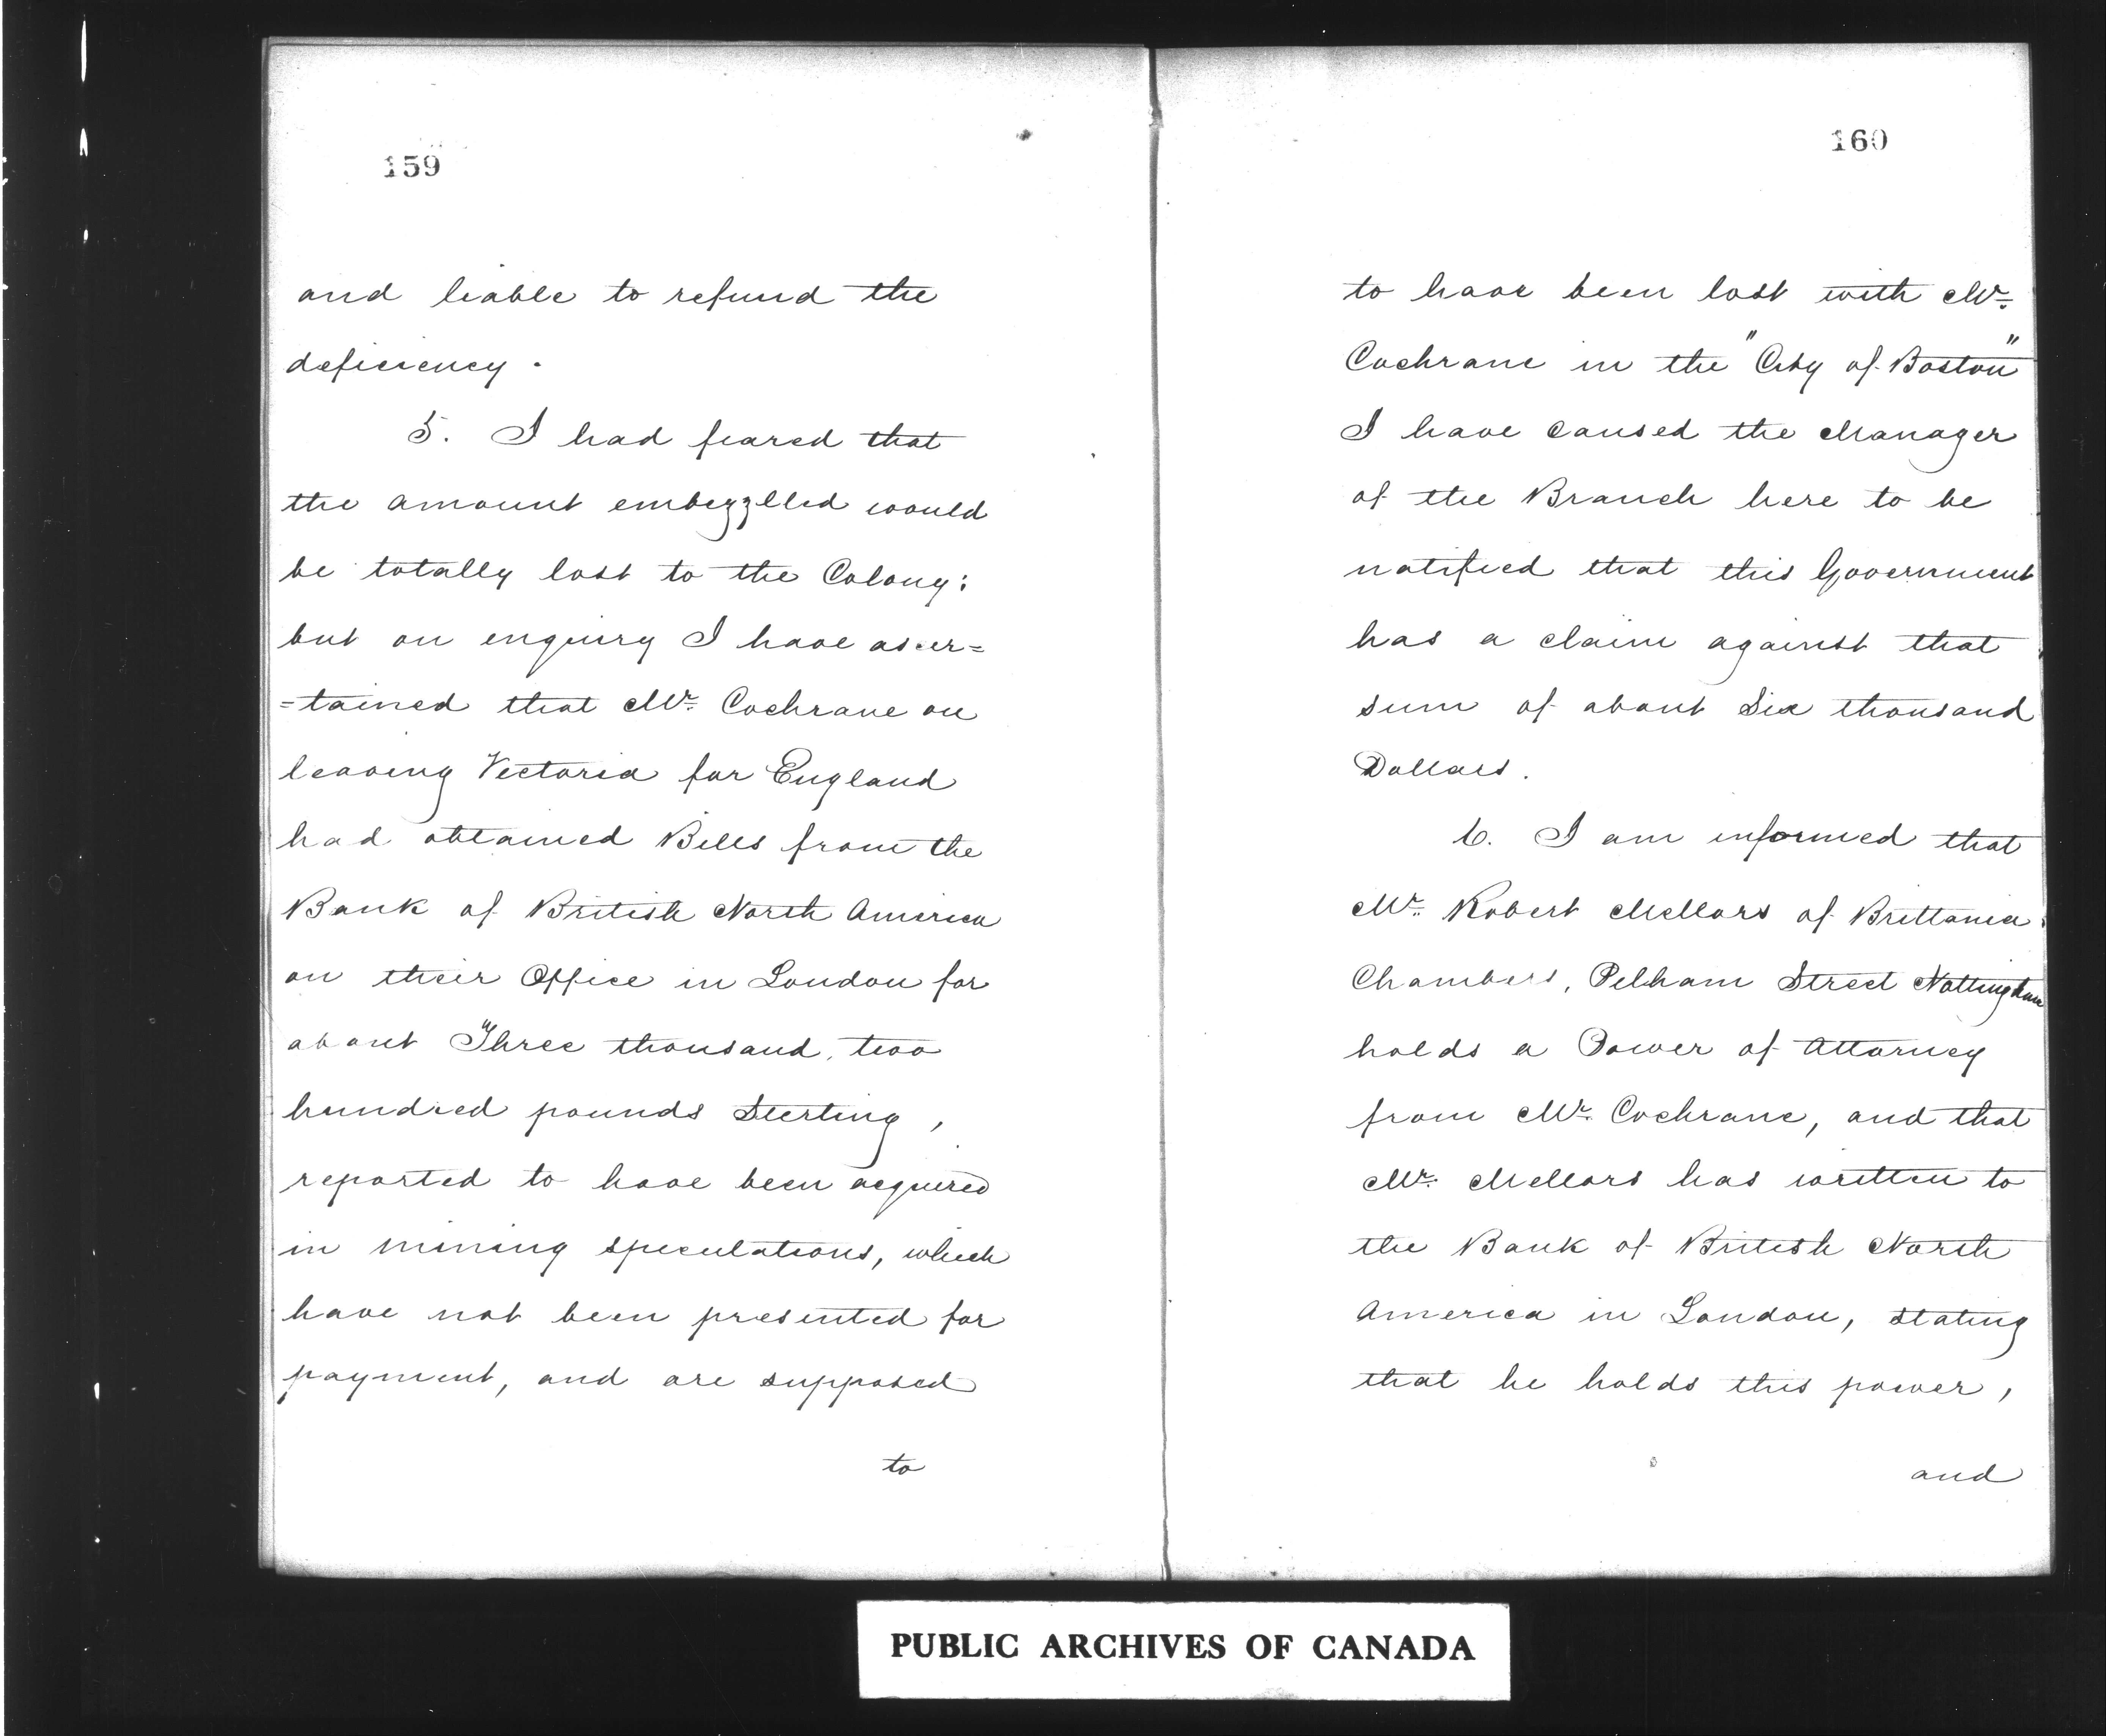 159
and liable to refund the
deficiency.
5. I had feared that
the amount embezzled would
be totally lost to the Colony;
but on enquiry I have ascer=
=tained that Mr. Cochrane on
leaving Victoria for England
had obtained Bills from the
Bank of British North America
on their Office in London for
about Three thousand, two
hundred pounds Sterling,
reported to have been acquired
in mining speculations, which
have not been presented for
payment, and are supposed
to
160
to have been lost with Mr.
Cochrane in the "City of Boston"
I have caused the Manager
of the Branch here to be
notified that this Government
has a claim against that
sum of about Six thousand
Dollars.
6. I am informed that
Mr. Robert Mellors of Brittania
Chambers, Pelham Street Nottingham
holds a Power of Attorney
from Mr. Cochrane, and that
Mr. Mellors has written to
the Bank of British North
America in London, stating
that he holds this power,
and
PUBLIC ARCHIVES OF CANADA